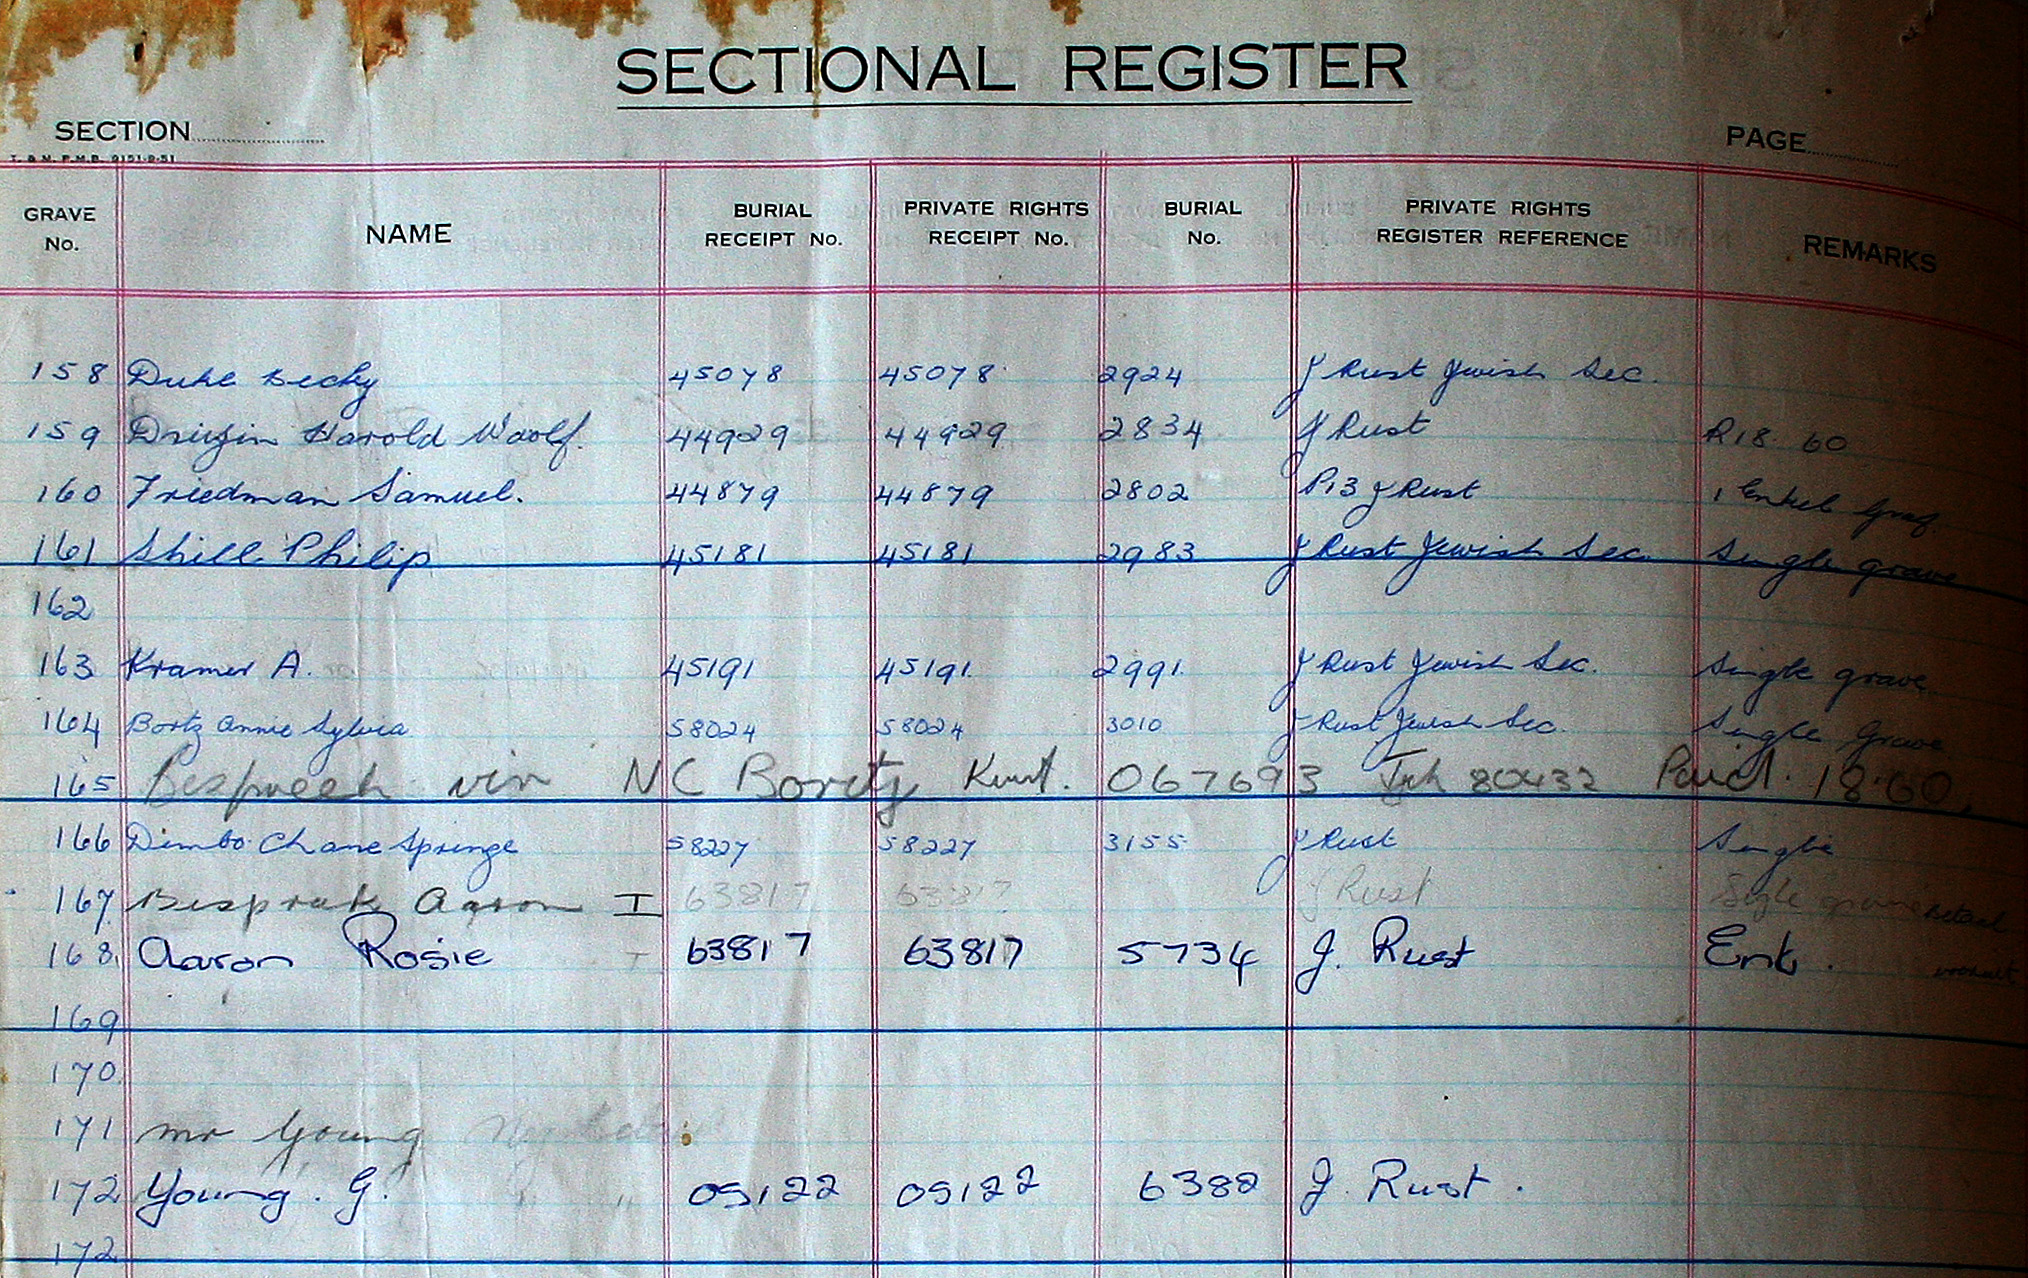 SECTIONAL REGISTER
SECTION
PAGE
T. & M. P.M.B. 9151-9-51
GRAVE No. NAME BURIAL RECEIPT No. PRIVATE RIGHTS RECEIPT No. BURIAL No. PRIVATE RIGHTS REGISTER REFERENCE REMARKS
158 Duke Becky 45078 45078 2924 J Rust Jewish Sec.
159 Harold Woolf. 44929 44929 2834 J Rust R18. 60
160 Friedman Samuel. 44879 44879 2802 P13 J Rust 1 Enkel Graf
161 Shill Philip 45181 45181 2983 J Rust Jewish Sec. Single grave
162
163 Kramer A. 45191 45191 2991. J Rust Jewish Sec. Single grave
164 Bortz Annie Sylvia 58024 58024 3010 J Rust Jewish Sec. Single Grave
165 Bespreek vir NC Bortz Kwt. 067693 80432 Paid. 18.60.
166 Dimbo Chane Springe 58227 58227 3155 J Rust Single
167 Bespreek Aaron I 63817 63817 J Rust Single grave Betaal
168 Aaron Rosie 63817 63817 5734 J. Rust Enk.
169
170
171 Mr Young
172 Young. G. 05122 05122 6382 J. Rust.
172